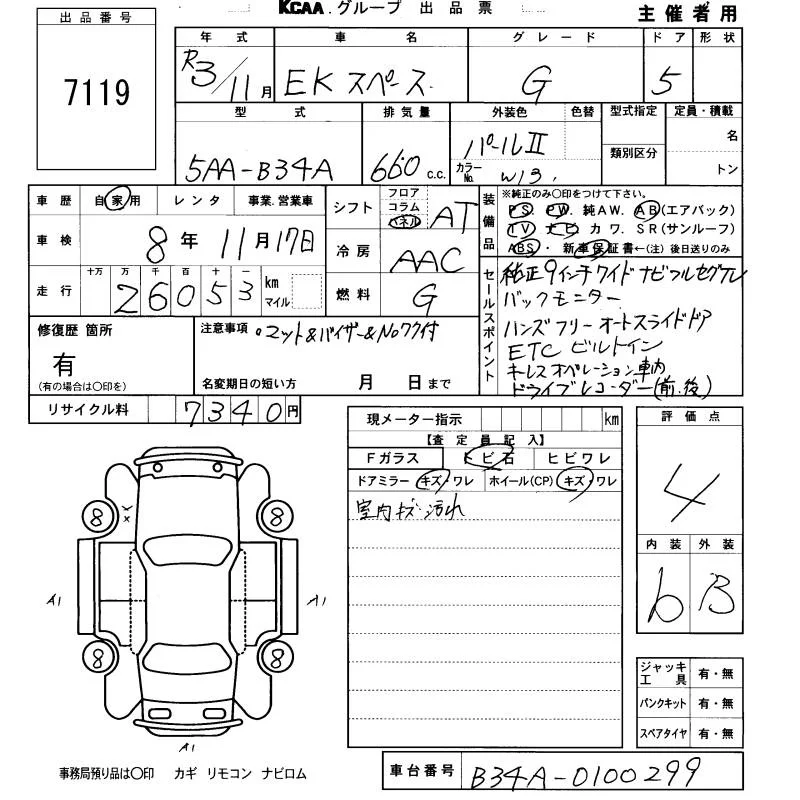 出品番号
7119
KCAA.グループ 出品票
主催者用
年式 車名 グレード ドア 形状
R3/11月 EKスペース. G 5
型式 排気量 外装色 色替 型式指定 定員・積載
5AA-B34A 660 c.c. パールII 類別区分 名
カラーNo. W13. トン
車歴 自家用 レンタ 事業.営業車
車検 8年11月17日
走行 十万 万 千 百 十 一
26053 km マイル
シフト フロア コラム パネル AT
冷房 AAC
燃料 G
装備品 ※純正のみ○印をつけて下さい。
PS. PW. 純AW. AB(エアバッグ)
TV ナビ カワ. SR(サンルーフ)
ABS・新車保証書←(注)後日送りのみ
セールスポイント
純正9インチワイドナビフルセグTV
バックモニター
ハンズフリーオートスライドドア
ETC ビルトイン
キーレスオペレーション 車内
ドライブレコーダー(前.後)
修復歴 箇所
有
(有の場合は○印を)
注意事項
・マット&バイザー&Noワク付
名変期日の短い方 月 日まで
リサイクル料 7340円
現メーター指示 km
【査定員記入】
Fガラス トビ石 ヒビワレ
ドアミラー キズ・ワレ ホイール(CP) キズ・ワレ
室内キズ・汚れ
評価点
4
内装 外装
b B
ジャッキ工具 有・無
パンクキット 有・無
スペアタイヤ 有・無
8 8
A1 A1
8 8
A1
事務局預り品は○印 カギ リモコン ナビロム
車台番号 B34A-0100299